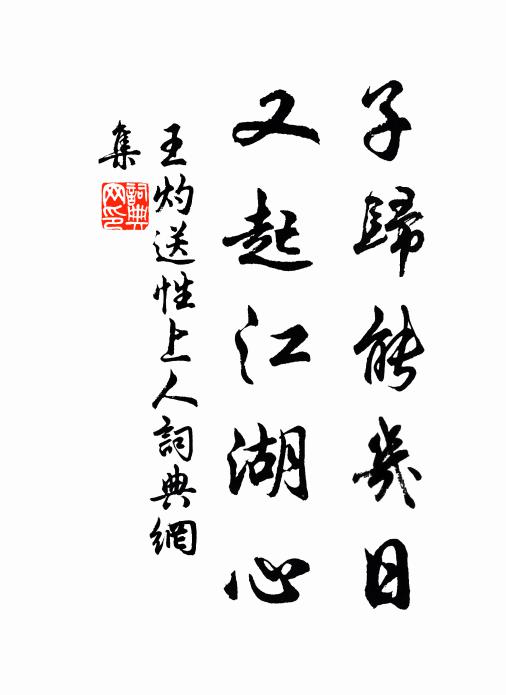 子歸能幾日
又起江湖心
王灼送性上人詞典網
集
詞典
网印